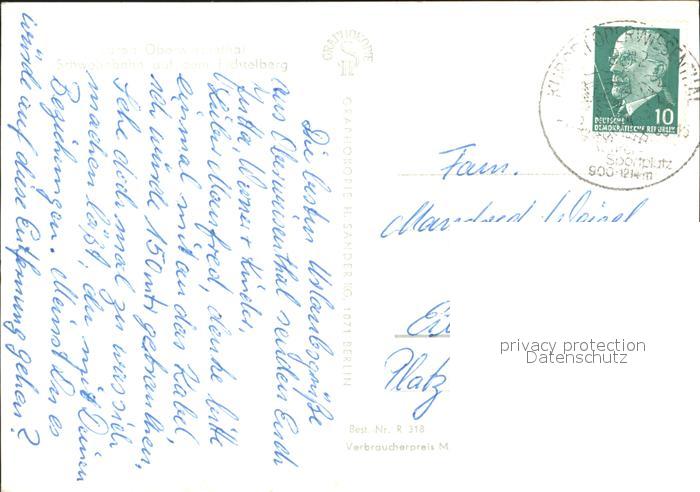 Kurort Oberwiesenthal
Schwebebahn auf dem Fichtelberg
GRAPHOKOPIE
GRAPHOKOPIE H. SANDER KG, 1071 BERLIN
Die besten Urlaubsgrüße
aus Oberwiesenthal senden Euch
Jutta, Werner + Kinder.
Lieber Manfred, denke bitte
einmal mit an das Kabel,
ich würde 150 mtr gebrauchen.
Sehe doch mal zu was sich
machen läßt, du mit Deinen
Beziehungen. Meinst Du es
würde auf diese Entfernung gehen?
KURORT OBERWIESENTHAL
Sportplatz
900-1214m
10
DEUTSCHE
DEMOKRATISCHE REPUBLIK
Fam.
Manfred
Platz
privacy protection
Datenschutz
Best. Nr. R 318
Verbraucherpreis M